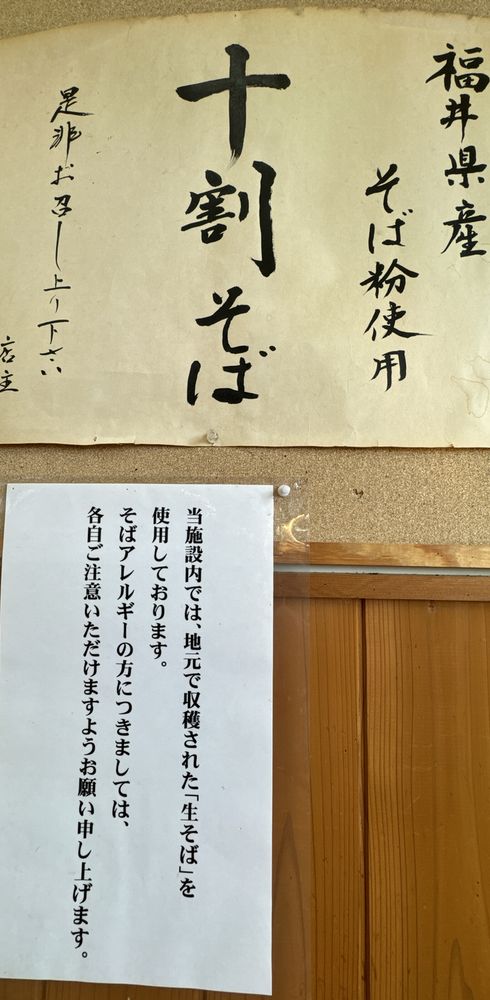 福井県産
そば粉使用
十割そば
是非お召し上り下さい
店主
当施設内では、地元で収穫された「生そば」を
使用しております。
そばアレルギーの方につきましては、
各自ご注意いただけますようお願い申し上げます。